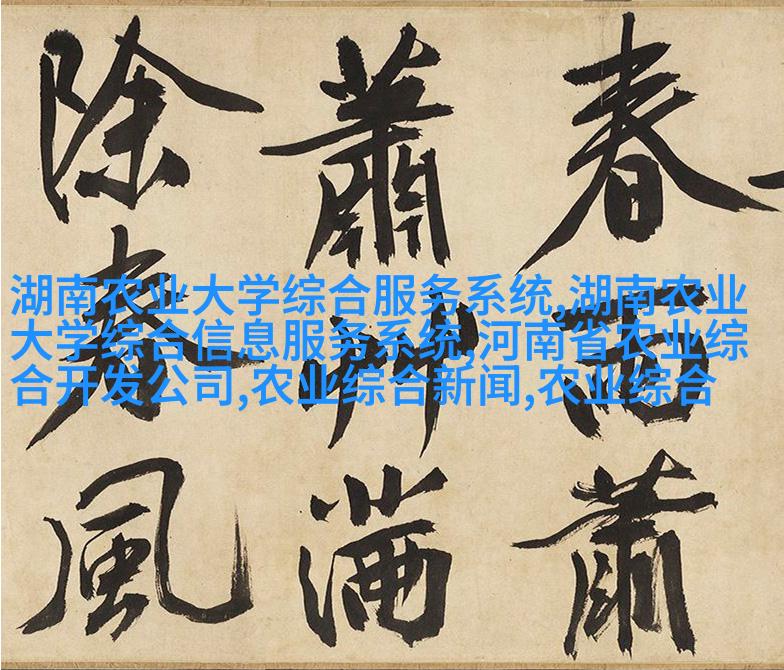 春雨蕭
蕭艸滿
除春風
湖南农业大学综合服务系统,湖南农业
大学综合信息服务系统,河南省农业综
合开发公司,农业综合新闻,农业综合